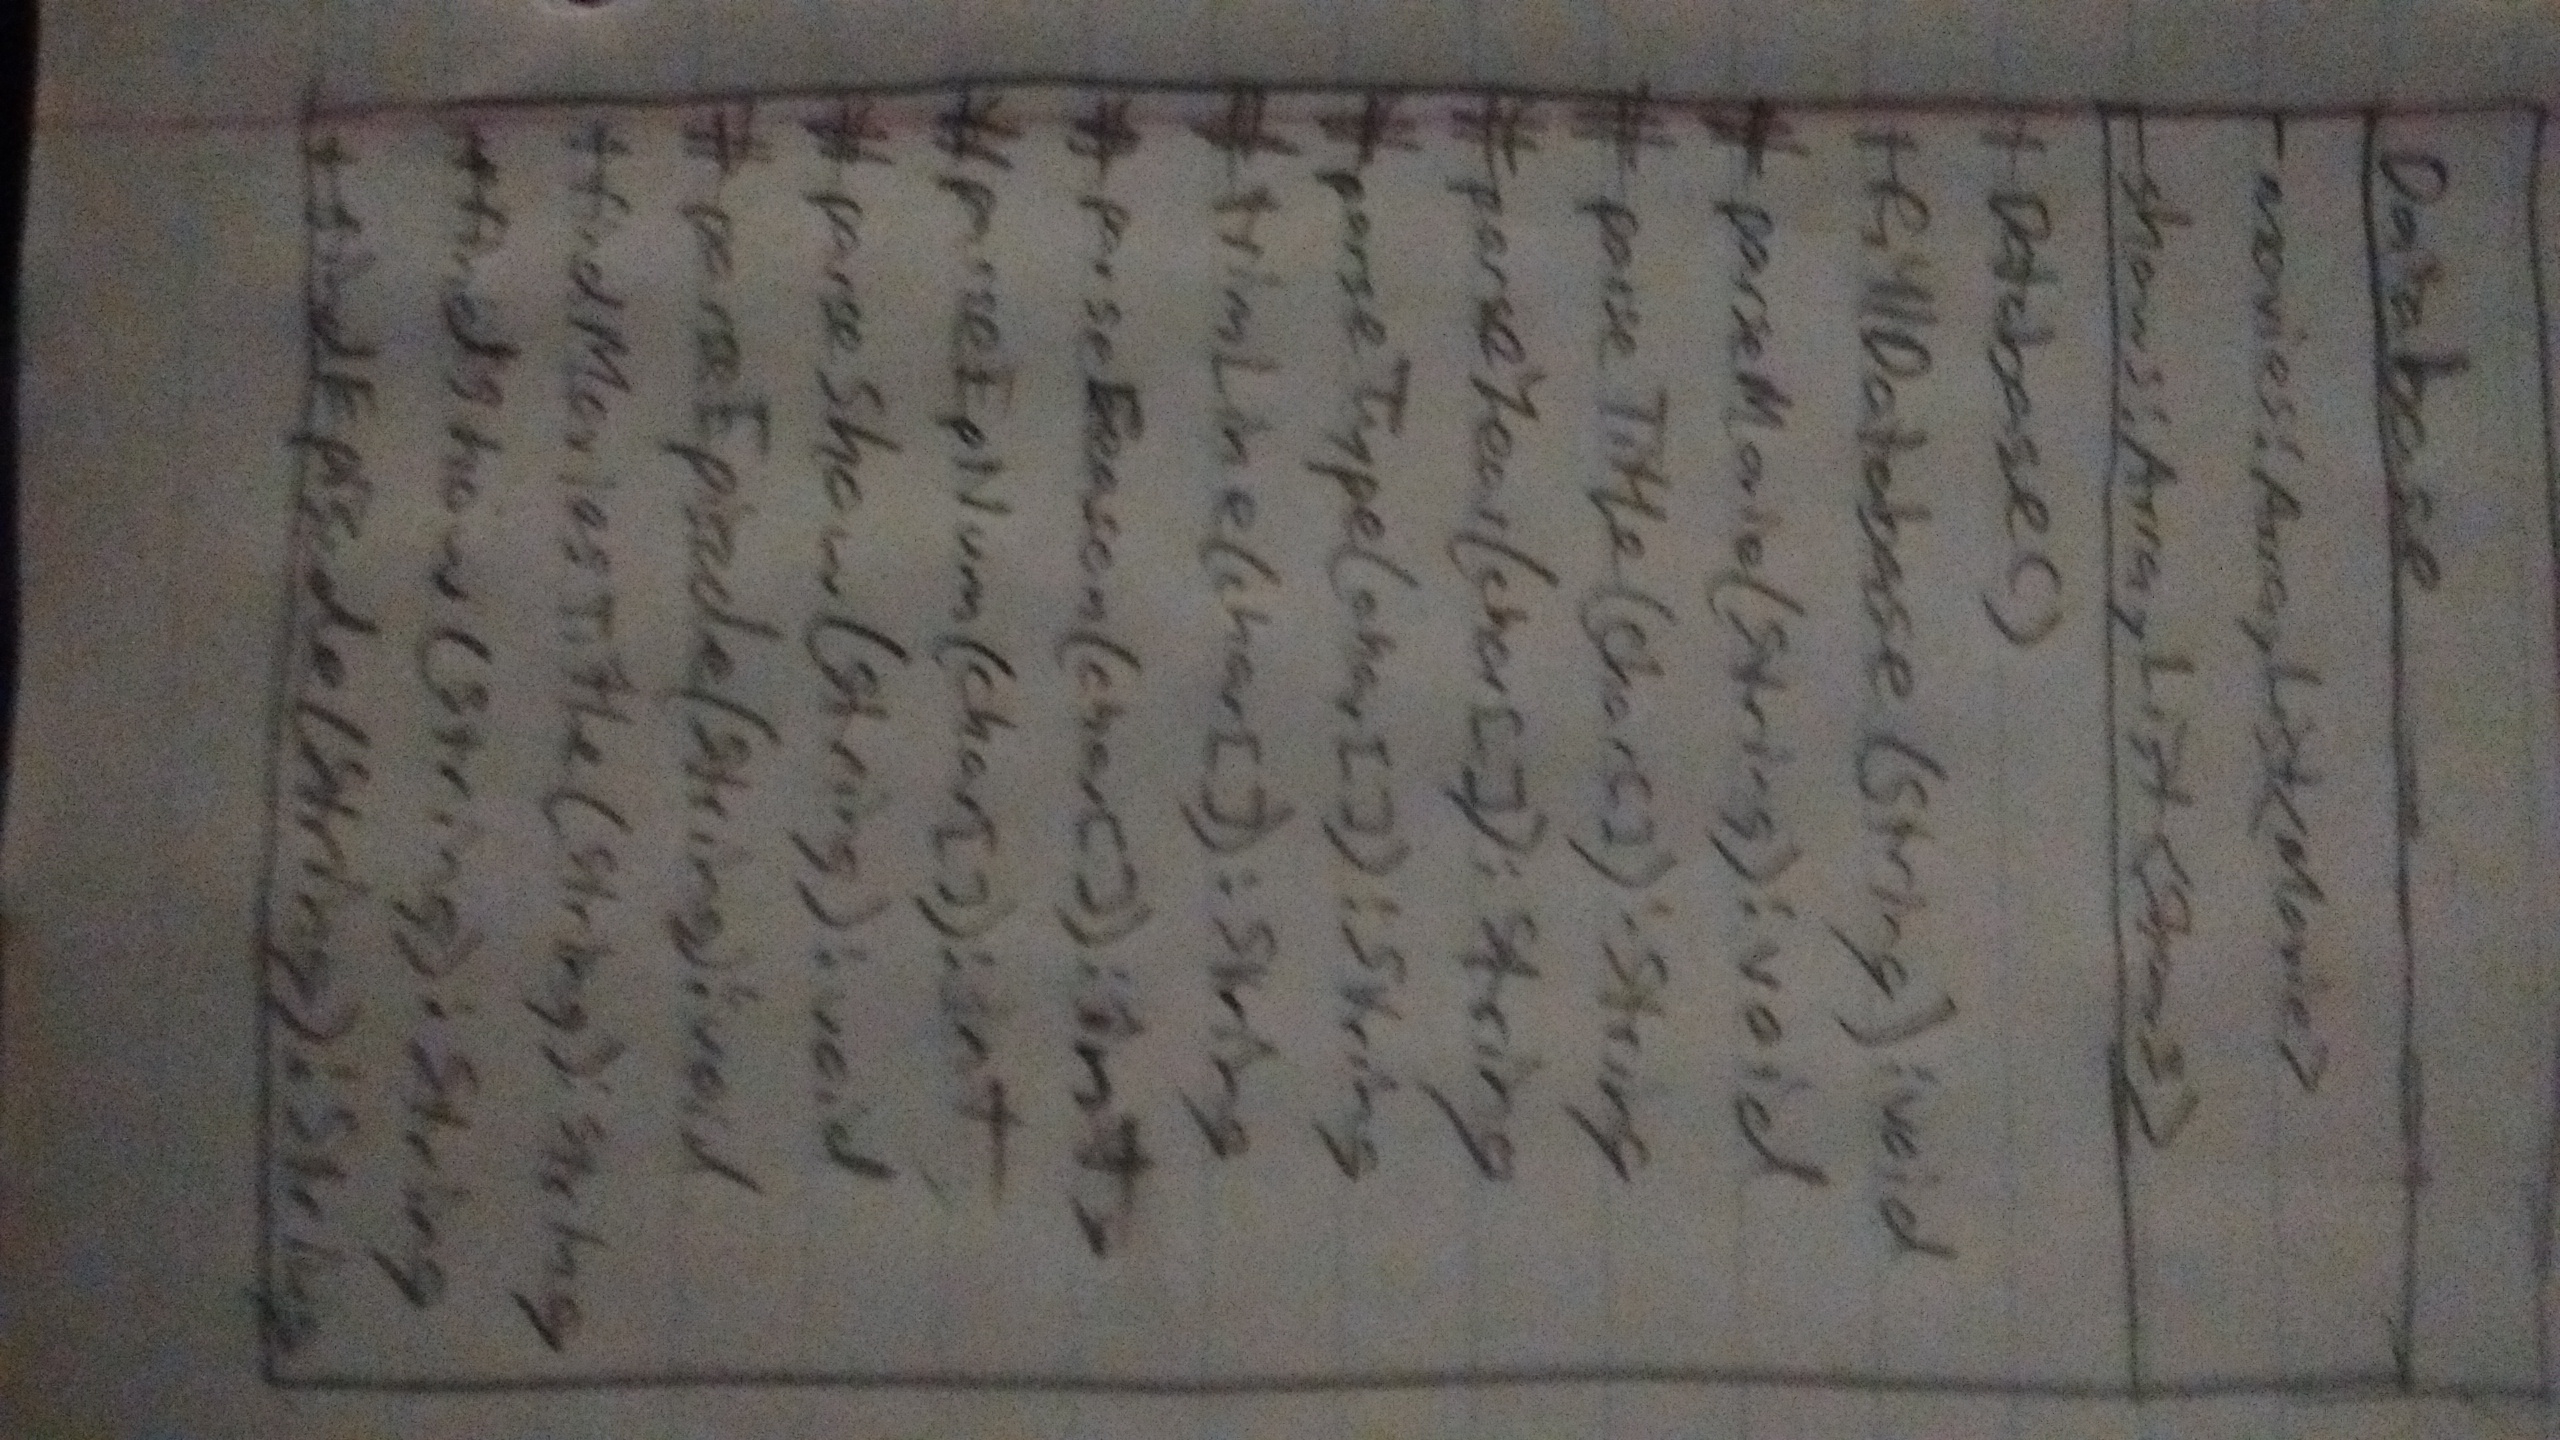 Database
-movies:ArrayList<Movie>
-shows:ArrayList<Show>
+Database()
+fillDatabase(String):void
#parseMovie(String):void
#parseTitle(char[]):String
#parseYear(char[]):String
#parseType(char[]):String
#trimLine(char[]):String
#parseSeason(char[]):int
#parseEpNum(char[]):int
#parseShow(String):void
#parseEpisode(String):void
+findMoviesTitle(String):String
+findShow(String):String
+findEpisode(String):String